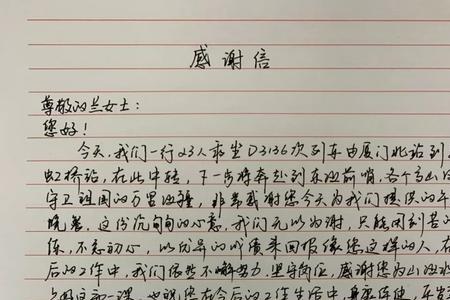 感谢信
尊敬的兰女士：
您好！
今天，我们一行23人乘坐D3136次列车由厦门北站到
虹桥站，在此中转，下一步将奔赴到东边前哨，各个高山
守卫祖国的万里海疆，非常感谢您今天为我们提供的午
晚差。这份沉甸甸的心意，我们无以为谢，只能用刻苦的
练，不忘初心，以优异的成绩来回报像您这样的人，在
后的工作中，我们依然不懈努力，坚守岗位，感谢您为
您在今后的工作生活中身体